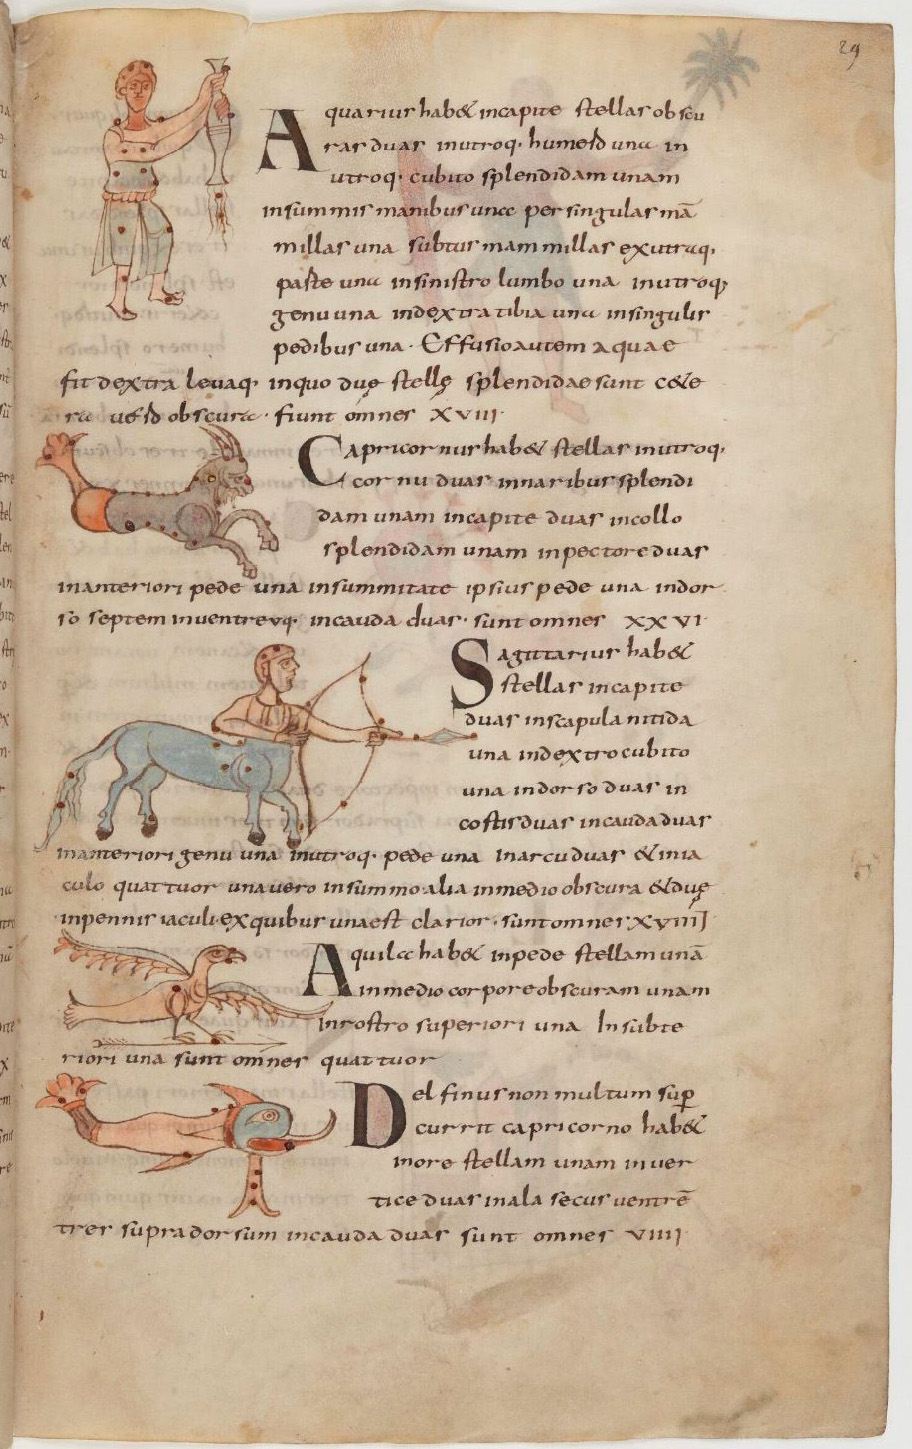 29
Aquarius hab& in capite stellas obscu
ras duas in utroq· humero una in
utroq· cubito splendidam unam
in summis manibus unā per singulas mā
millas una subtus mammillas ex utraq·
parte una in sinistro lumbo una in utroq·
genu una in dextra tibia una in singulis
pedibus una· Effusio aut em aquae
fit dextra levaq· in quo duę stellę splendidae sunt c&e
ra obscura· fiunt omnes XVIII·
Capricornus hab& stellas in utroq·
cornu duas in naribus splendi
dam unam in capite duas in collo
splendidam unam in pectore duas
in anteriori pede una in summitate ipsius pede una in dor
so septem in ventre vq· in cauda duas· sunt omnes XXVI·
Sagittarius hab&
stellas in capite
duas in scapula nitida
una in dextro cubito
una in dorso duas in
costis duas in cauda duas
in anteriori genu una in utroq· pede una In arcu duas & in ia
culo quattuor una vero in summo alia in medio obscura & duę
in pennis iaculi· ex quibus una est clarior· sunt omnes XVIIII
Aquila hab& in pede stellam unā
in medio corpore obscuram unam
in rostro superiori una In subte
riori una sunt omnes quattuor
Delfinus non multum sup
currit capricorno hab&
in ore stellam unam in ver
tice duas in ala secus ventrē
tres supra dorsum in cauda duas sunt omnes VIIII